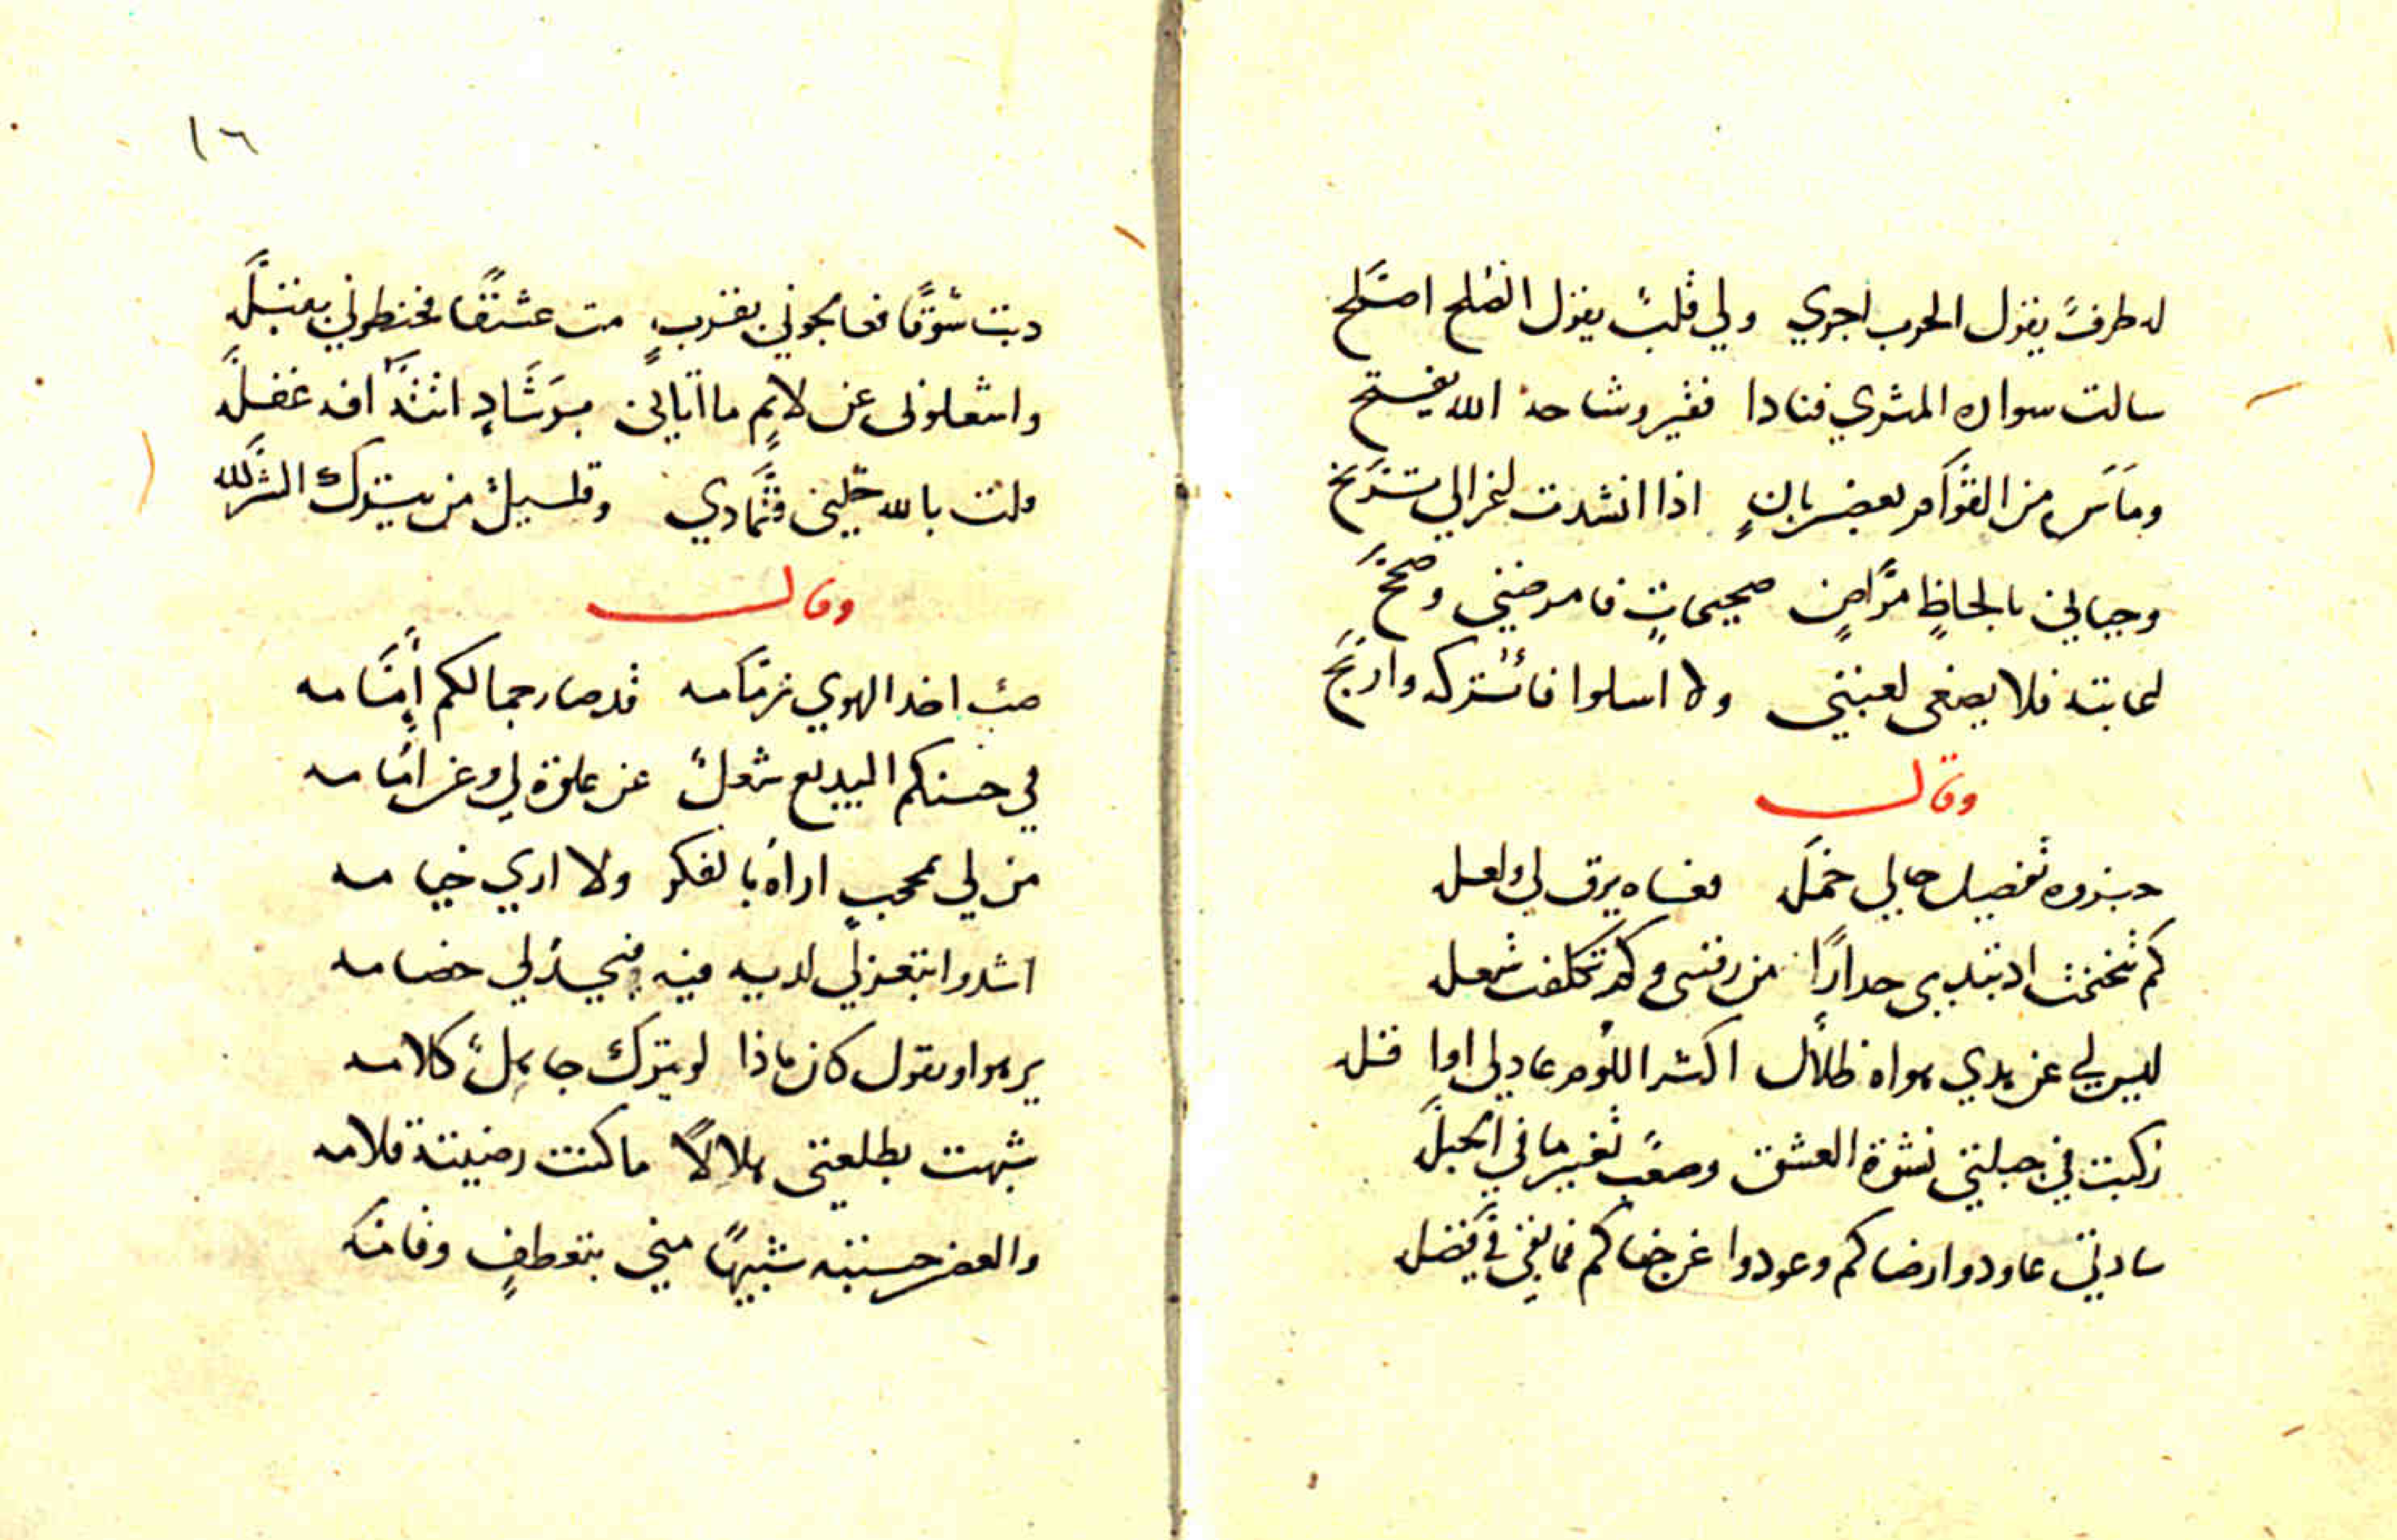 له طرفً يقول الحرب اجري ولي قلبً يقول الصلح اصلح
سالت سواره المثري فنادا فقير وشاحه الله يفتح
وماس من القوام بغصن بانٍ اذا انشدت لغزالي ترنح
وحياني بالحاظٍ مراضٍ صحيحاتٍ فامرضني وصحح
لحابته فلا يصغى لعبتني ولا اسلوا فاتركه واربح
وقال
خبروه تفصيل حالي جمله فعساه يرق لي ولعله
كم تحنحت اذ تبدى حدارًا من رفسى وكم تكلفت شعله
ليس لي عن هدي هواه ظلال اكثر اللوم عادلي اوا قله
ركبت في جبلتي نشوة العشق وصعب تغيير ما في الجبله
سادتي عاودوا رضاكم وعودوا عن جفاكم فما بقي في فضله
١٦
دبت شوقًا فعالجوني بقربٍ مت عشقًا فحنطوني بقبله
واشغلونى عن لايمٍ ما اتاني برشادٍ انه افه غفله
قلت بالله خليني فتمادي وقليل من يترك الشر لله
وقال
صب اخذ الهوي زمامه قد صار جمالكم إمامه
في حسنكم البديع شغل عن علوة لي وعن امامه
من لي بمحجبٍ اراه بالفكر ولا اري خيامه
اشدوا بتغزلي لديه فيه فيجد لي خصامه
يرهوا ويقول كان ماذا لو يترك جاهل كلامه
شبهت بطلعتى هلالًا ما كنت رضيته قلامه
والغصن حسبته شبيهًا مني بتعطفٍ وقامه